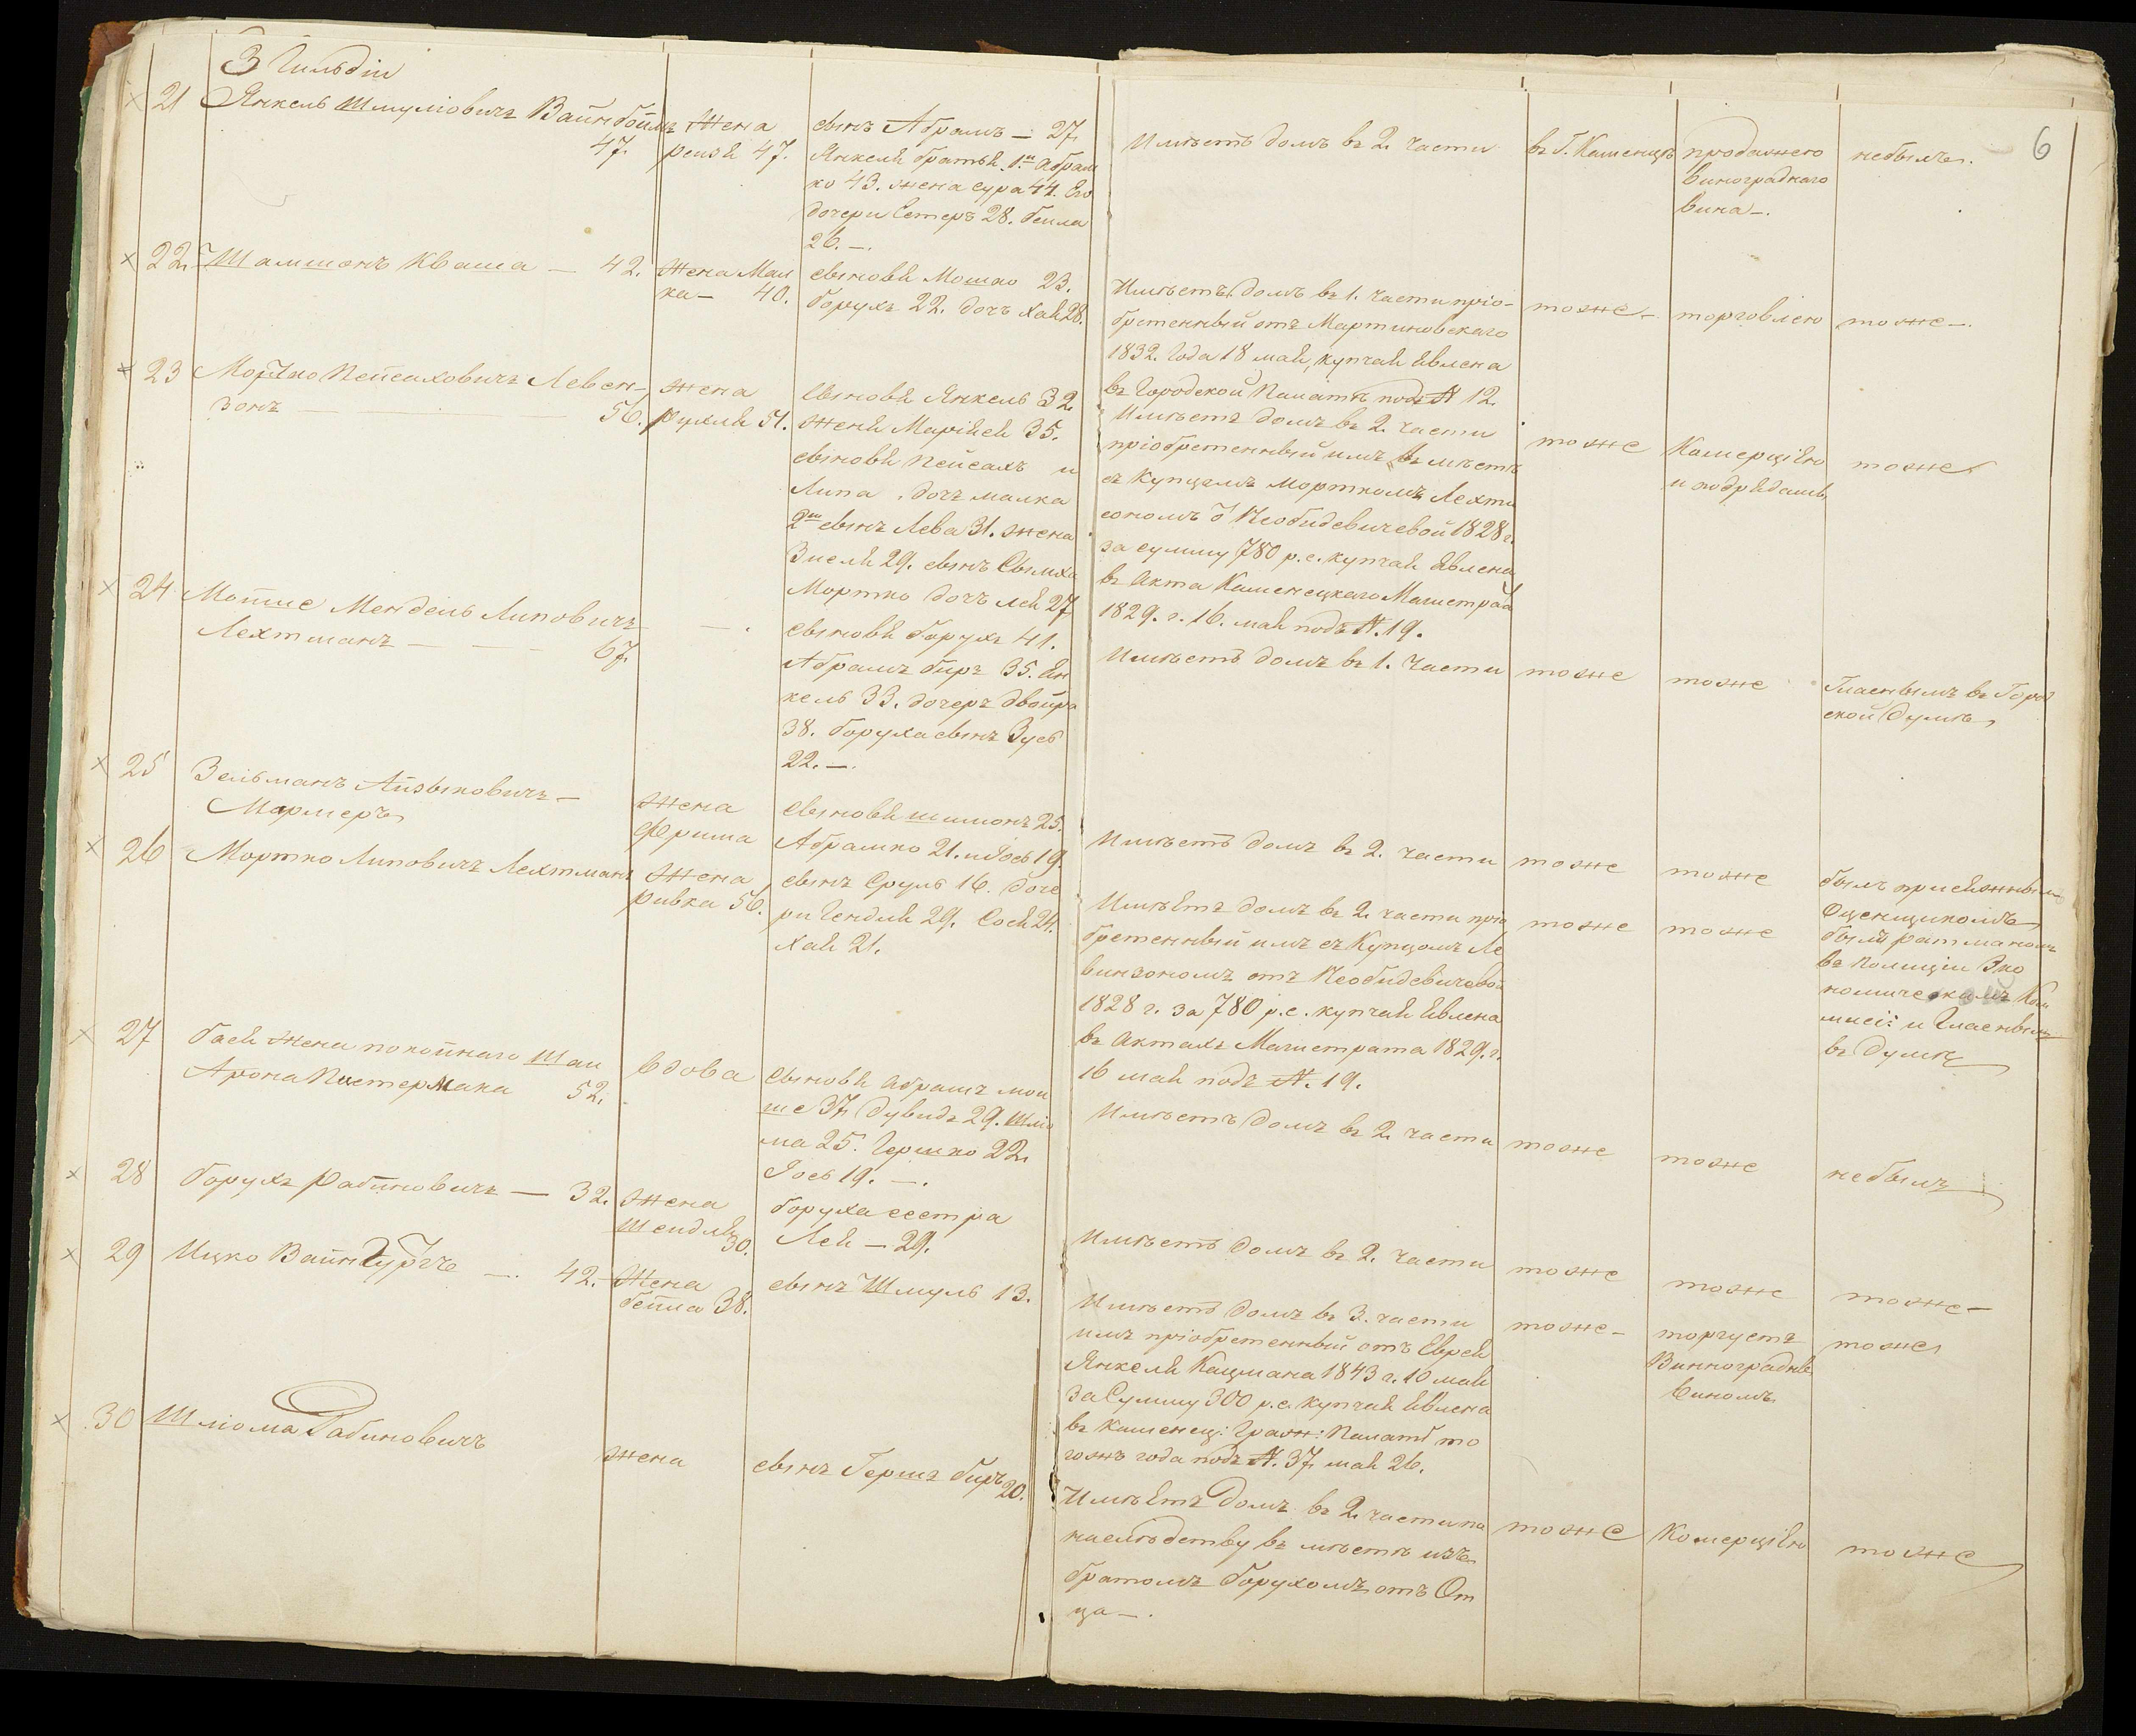 3 Гильдіи
21 Янкель Шмуліовичъ Вайнбойм
47.
Жена
рейзя 47.
сынъ Абрамъ — 27.
Янкеля братья 1й Абрам
ко 43. жена сура 44. Его
дочери Естеръ 28. беила
26. —.
Имѣетъ домъ въ 2. части
въ г. Каменцѣ
продажею
винограднаго
вина —.
небылъ.
6
22. Шамшонъ Кваша — 42.
Жена Мал
ка — 40.
сыновя Мошко 23.
борухъ 22. дочь хая 28.
Имѣетъ домъ въ 1. части пріо-
бретенный отъ Мартиновскаго
1832. года 18 мая, купчая явлена
въ Городской Палатѣ подъ № 12.
тоже —
торговлею
тоже —.
23 Мортко Пейсаховичъ Левен-
зонъ — 56.
жена
рухля 51.
Сыновя Янкель 32
жена Маріяся 35.
сыновя Пейсахъ и
Липа, дочь малка
2й сынъ Лева 31. жена
Зисля 29. сынъ Сымха
Мортко дочь лея 27
Имѣетъ домъ въ 2. части
пріобретенный имъ въ мѣстѣ
съ Купцемъ Морткомъ Лехт
1828 г.
за сумму 780 р. с. купчая явлена
въ акта Каменецкаго Магистрата
1829. г. 16. мая подъ №. 19.
тоже
Комерціею
и подрядами
тоже
24 Мотше Мендель Липовичъ
Лехтманъ — — — 67.
— .
сыновя борухъ 41.
Абрамъ бирь 35. Ян
кель 33. дочерь двойра
38. боруха сынъ Зусь
22. —.
Имѣетъ домъ въ 1. части
тоже
тоже
Гласнымъ въ Город
ской Думѣ
25 Зельманъ Айзыковичъ —
Мармеръ
жена
фрима
сыновя шимонъ 25.
Абрамко 21. и Іось 19.
Имѣетъ домъ въ 2. части
тоже
тоже
былъ присяжным
Оценщикомъ
26 Мортко Липовичъ Лехтманъ
Жена
ривка 56.
сынъ Сруль 16. доче
ри Гендля 29. Сося 24.
хая 21.
Имѣетъ домъ въ 2. части пріо
бретенный имъ съ Купцомъ Ле
винзономъ отъ
1828 г. за 780 р. с. купчая явлена
въ актахъ Магистрата 1829. г.
16 мая подъ №. 19.
тоже
тоже
былъ ратманом
въ полиціи Эко
номическамъ Ком
мисіи: и гласным
въ думѣ
27 бася жена покойнаго Шаи
Арона Пистермака 52.
вдова
Сыновя Абрамъ мои
ше 37. Дувидъ 29. Шліо
ма 25. Гершко 22.
Іось 19. —.
Имѣетъ домъ въ 2. части
тоже
тоже
небылъ
28 борухъ рабиновичъ — 32.
жена
шендля
30.
боруха сестра
Лея — 29.
Имѣетъ домъ въ 2. части
тоже
тоже
тоже —
29 Ицко Вайнгурте — 42.
Жена
бейла 38.
сынъ Шмуль 13.
Имѣетъ домъ въ 3. части
имъ пріобретенный отъ Еврея
Янкеля Кацмана 1843 г. 10 мая
за сумму 300 р. с. купчая явлена
въ Каменец: Граж: Палатѣ то
гожъ года подъ №. 37. мая 26.
тоже —
торгуетъ
Винограднв
Виномъ
тоже
30 Шліома Рабиновичъ
жена
сынъ Гершъ биръ 20.
Имѣетъ домъ въ 2. части по
наслѣдству въ мѣстѣ изъ
братомъ борухомъ отъ От
ца —.
тоже
Комерціею
тоже